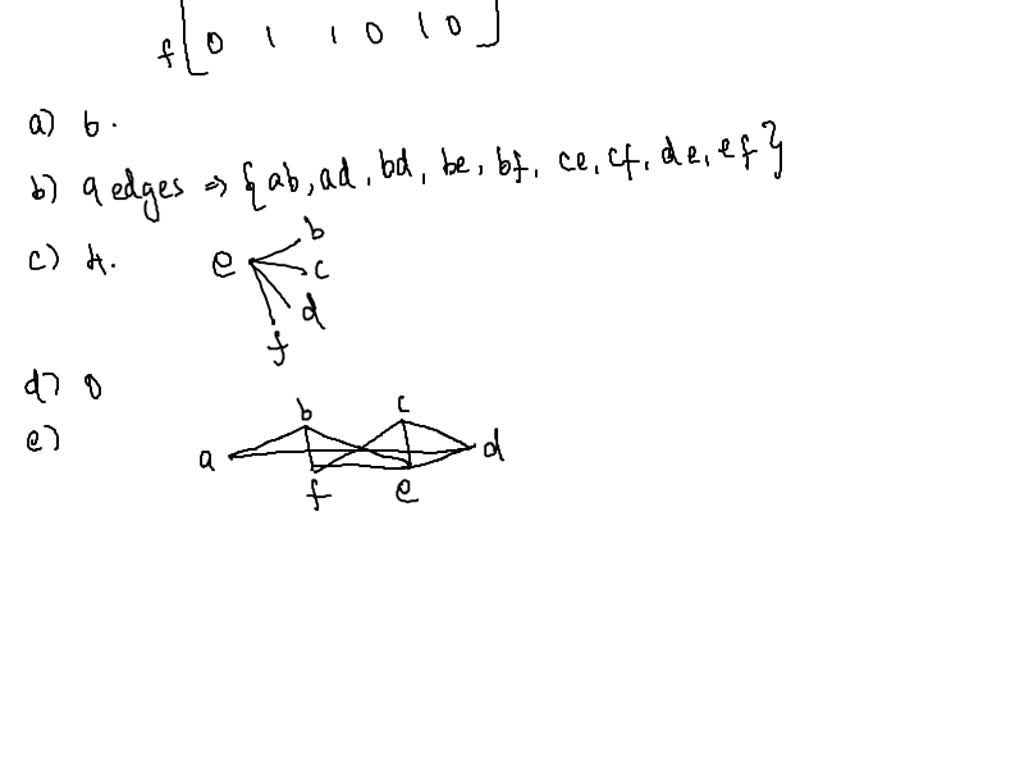 f [ 0 1 1 0 1 0 ]
a) 6.
b) 9 edges ⇒ {ab, ad, bd, be, bf, ce, cf, de, ef}
c) 4.
e b c d f
d) 0
e)
b c
a d
f e